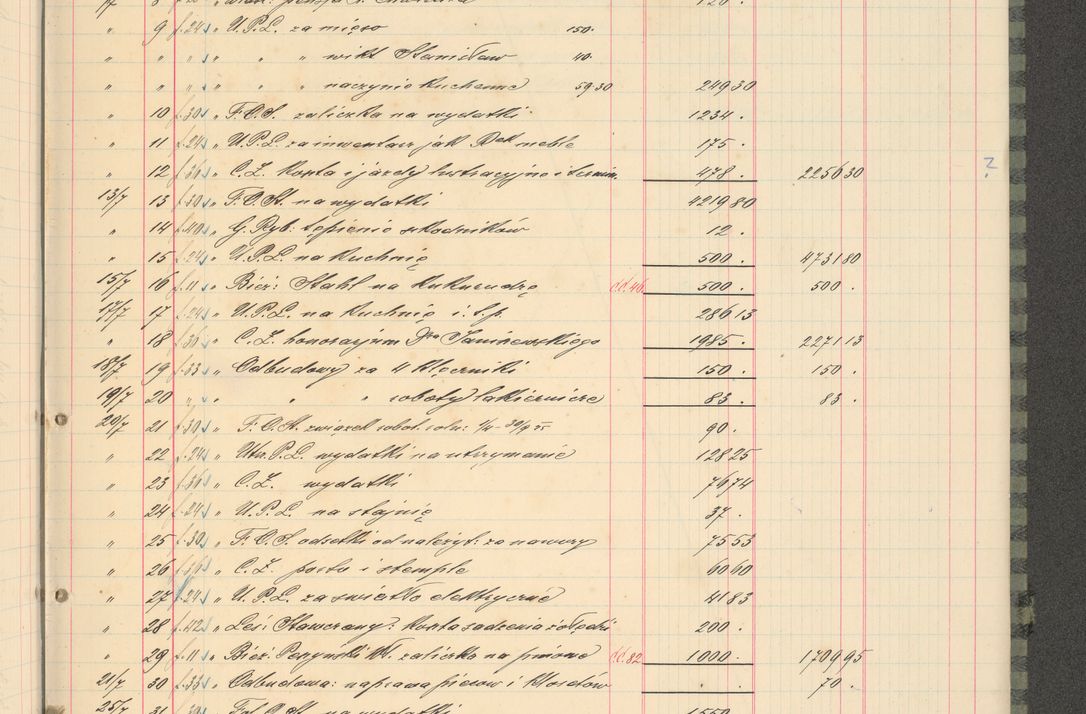 " 9 f.24 " U.P.L. za mięso 150.
" " " " " " wikt Stanisław 40.
" " " " " " naczynia kuchenne 59.30 249 30
" 10 f.30 " F.O.S. zaliczka na wydatki 1234 .
" 11 f.24 " U.P.L. za inwentarz jak meble 175 .
" 12 f.36 " C.Z. Koszta i jazdy lustracyjne i 478 . 2256 30
13/7 13 f.30 " F.O.St. na wydatki 4219 80
" 14 f.40 " G. Ryb: tępienie szkodników 12 .
" 15 f.24 " U.P.L. na kuchnię 500 . 4731 80
15/7 16 f.11 " Bież: Stahl na kukurudzę cd.46 500 . 500 .
17/7 17 f.24 " U.P.L. na kuchnię i.t.p. 286 13
" 18 f.36 " C.Z. honorarjum Dra 1985 . 2271 13
18/7 19 f.33 " Odbudowy za 4 150 . 150 .
19/7 20 " " " " roboty lakiernicze 83 . 83 .
20/7 21 f.30 " F.O.St. związek robot. roln: 90 .
" 22 f.24 " Utrz.P.L. wydatki na utrzymanie 128 25
" 23 f.36 " C.Z. wydatki 76 74
" 24 f.24 " U.P.L. na stajnię 37 .
" 25 f.30 " F.O.S. odsetki od należyt: za nawozy 75 53
" 26 f.36 " C.Z. porta i stemple 60 60
" 27 f.24 " U.P.L. za światło elektryczne 41 83
" 28 f.42 " Leś: Koszta sadzenia żołędzi 200 .
" 29 f.11 " Bież. zaliczka na cd.82 1000 . 1709 95
21/7 30 f.33 " Odbudowa: naprawa pieców i 70 .
25/7 31 f.30 " na wydatki 1550
?